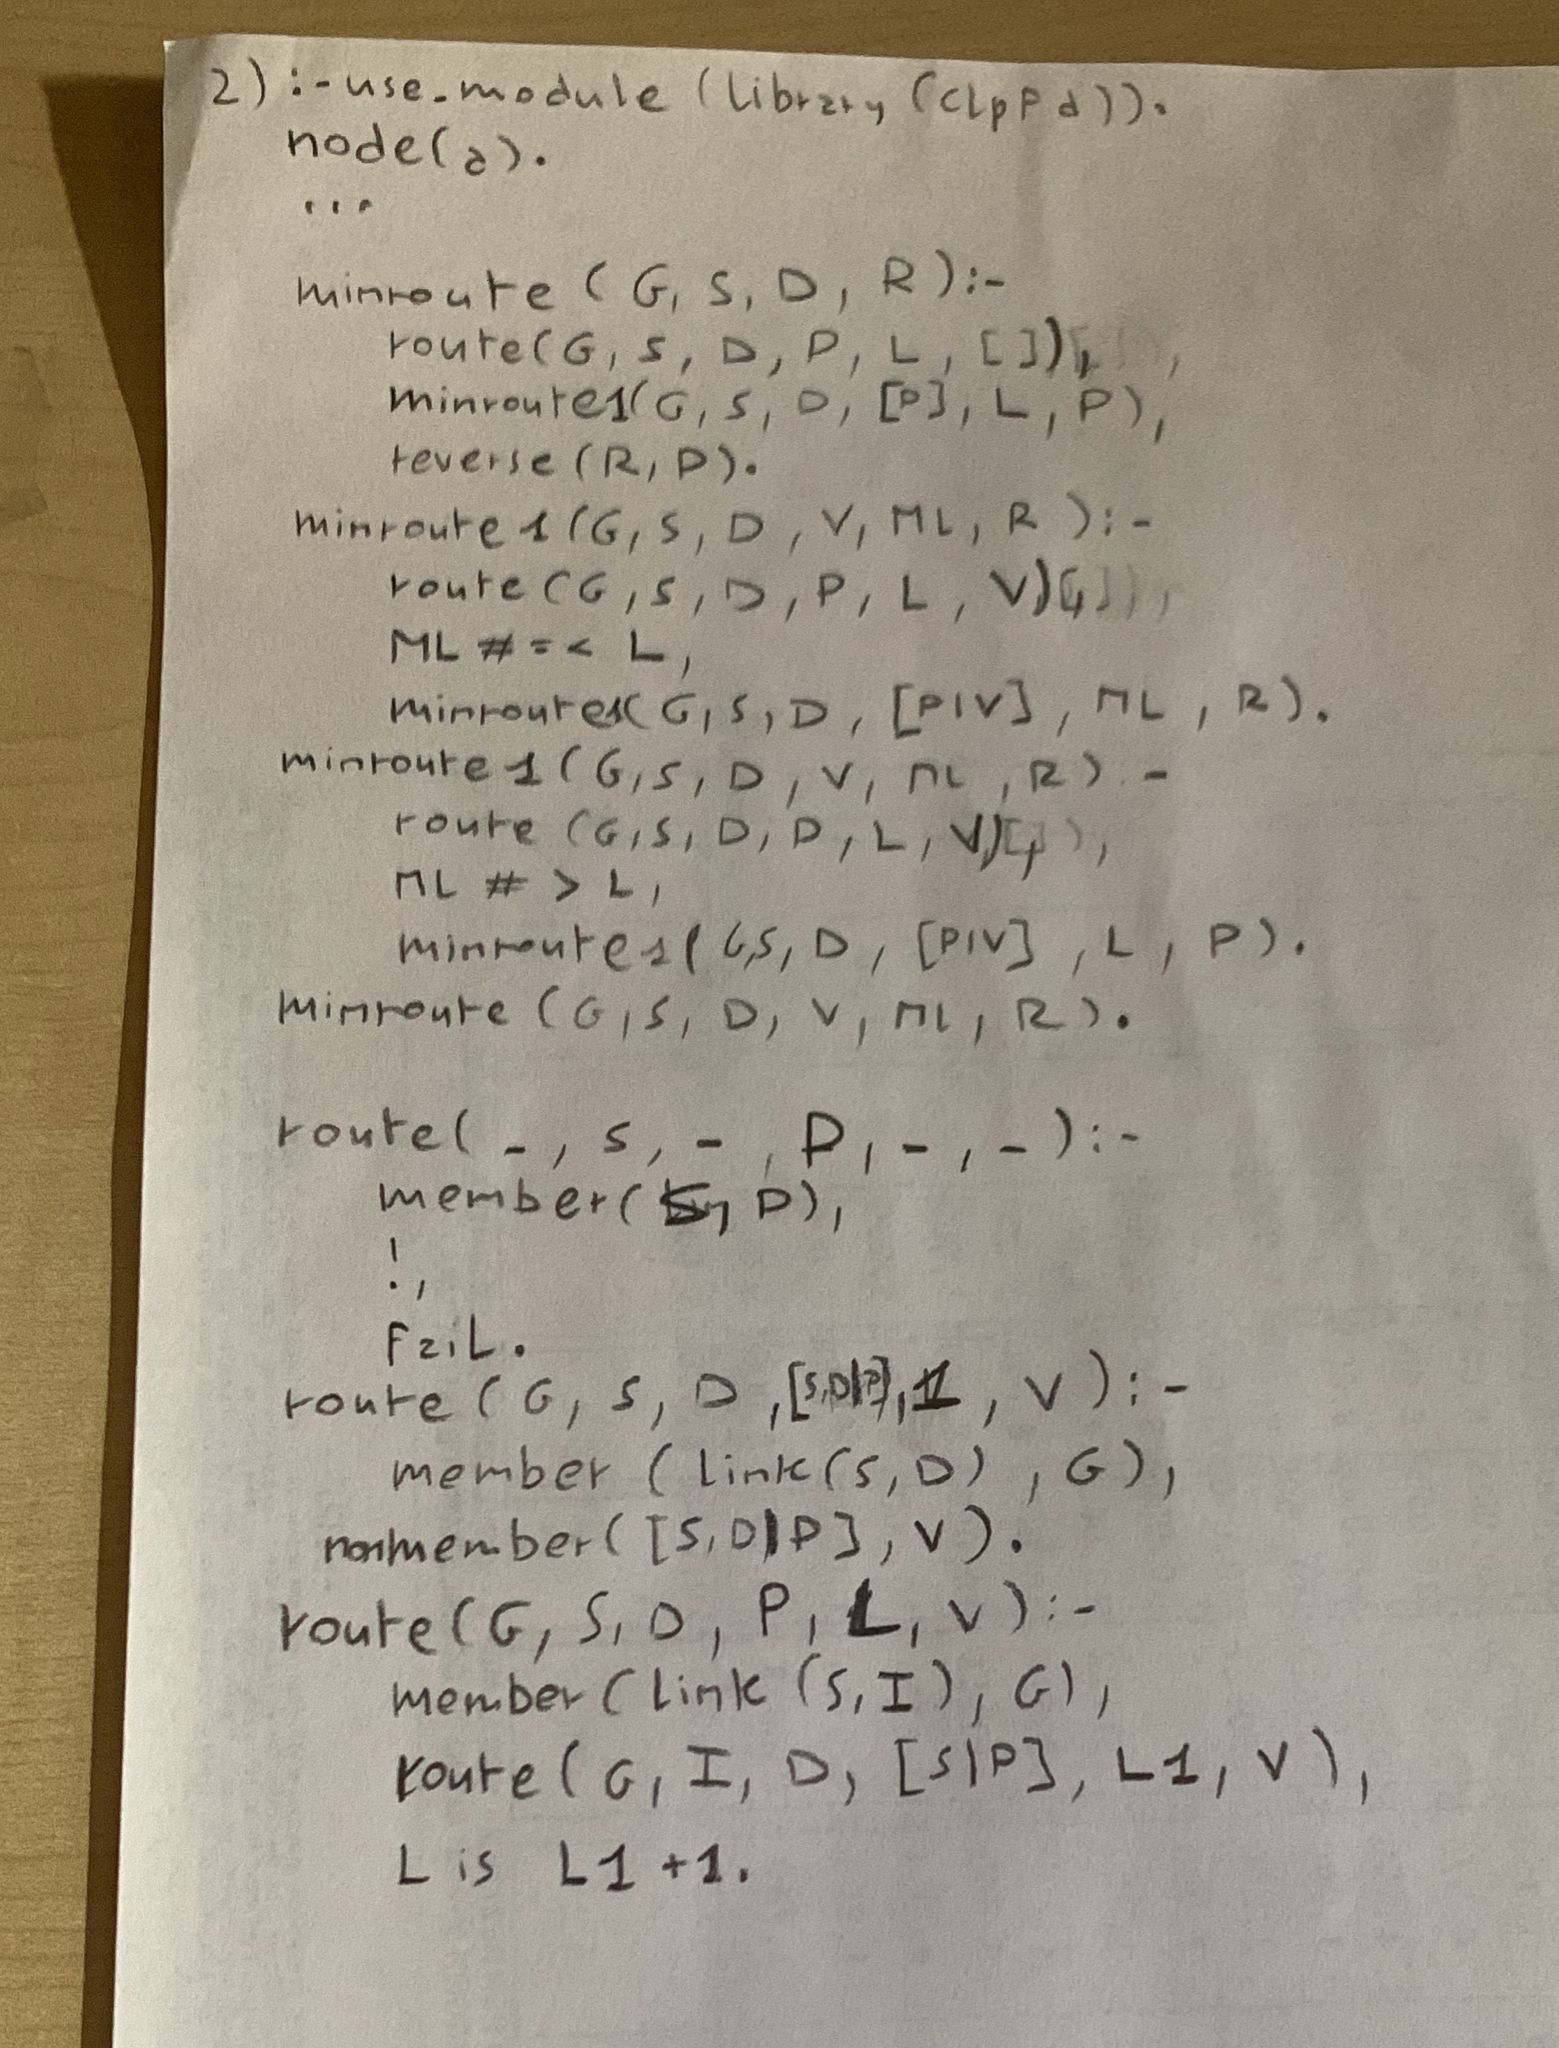 2) :- use_module (library (clpfd)).
node(a).
...
minroute (G, S, D, R) :-
route(G, S, D, P, L, []),
minroute1(G, S, D, [P], L, P),
reverse (R, P).
minroute1 (G, S, D, V, ML, R) :-
route (G, S, D, P, L, V),
ML #=< L,
minroute1(G, S, D, [P|V], ML, R).
minroute1 (G, S, D, V, ML, R) -
route (G, S, D, P, L, V),
ML #> L,
minroute1( G,S, D, [P|V], L, P).
minroute (G, S, D, V, ML, R).
route( _, S, _, P, _, _) :-
member( S, P),
!,
fail.
route (G, S, D, [S,D|P], 1, V) :-
member (link(S, D), G),
nonmember([S,D|P], V).
route(G, S, D, P, L, V) :-
member(link (S, I), G),
route( G, I, D, [S|P], L1, V),
L is L1 +1.